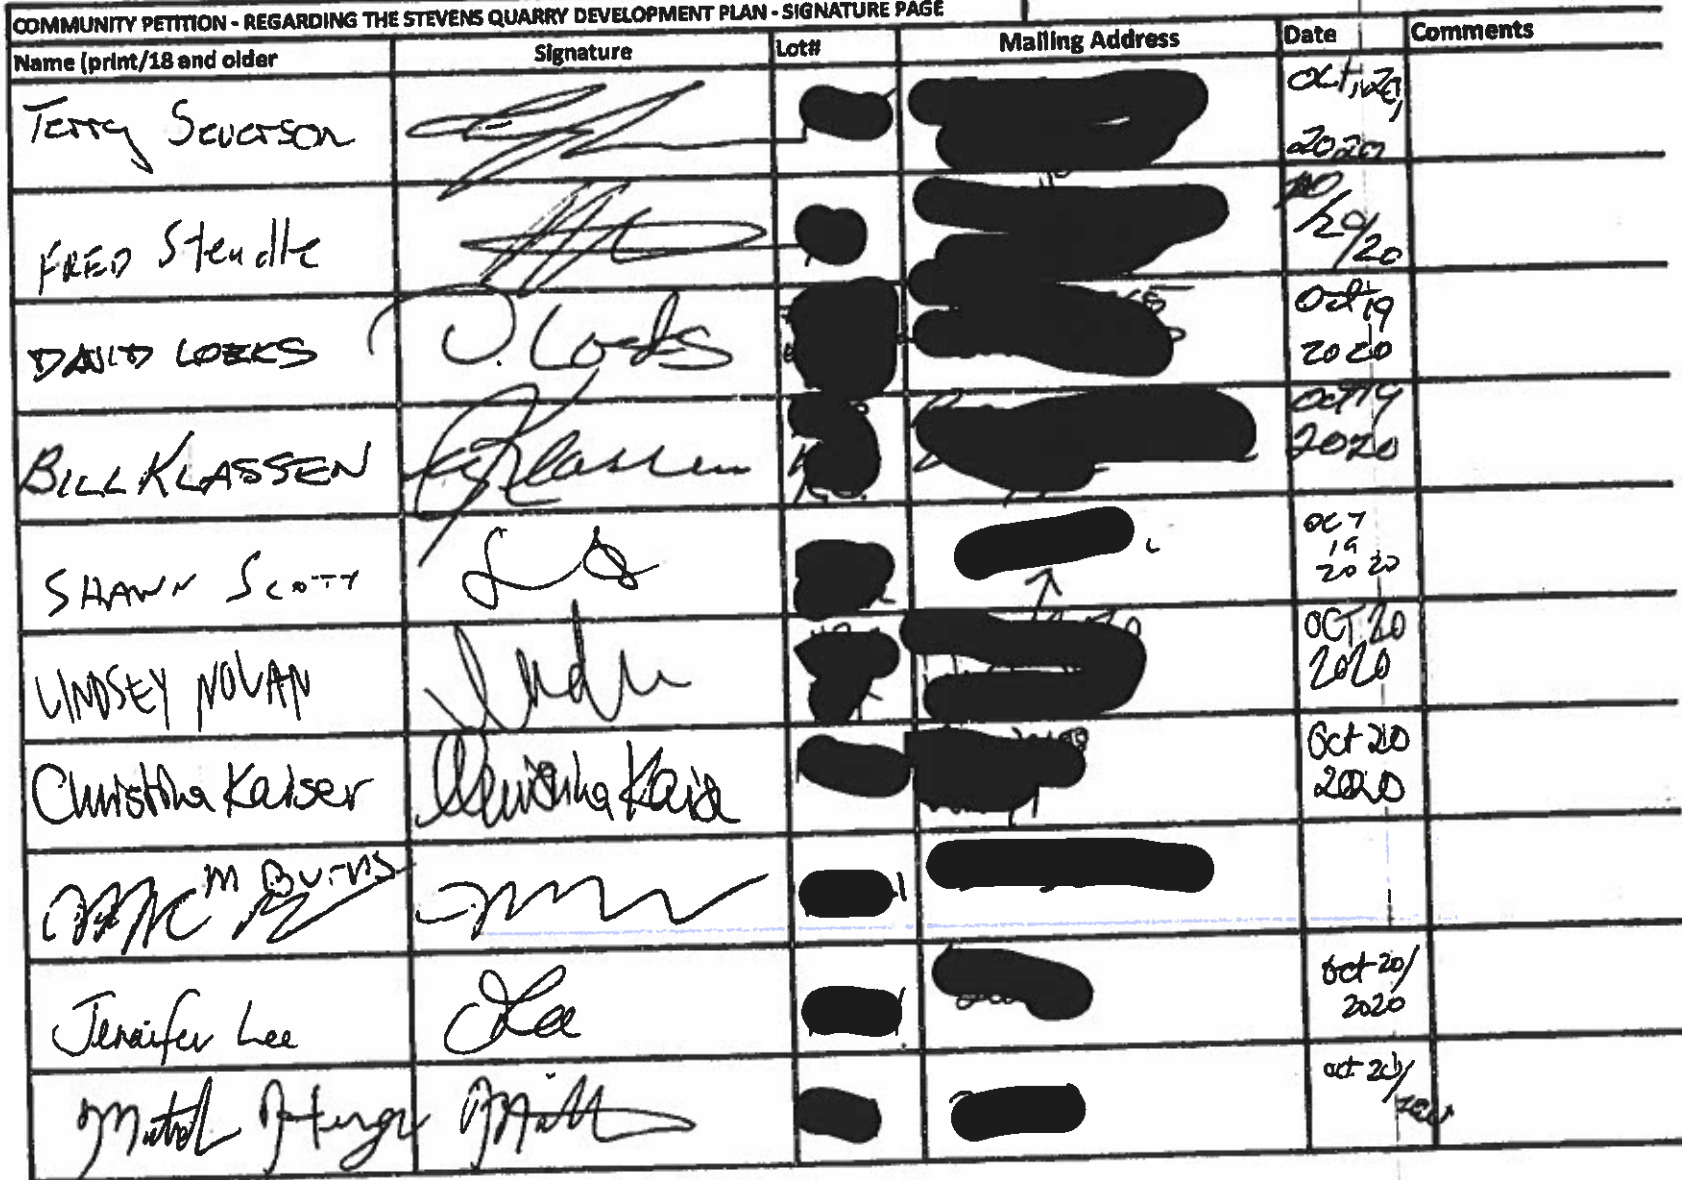 COMMUNITY PETITION - REGARDING THE STEVENS QUARRY DEVELOPMENT PLAN - SIGNATURE PAGE
Name (print/18 and older Signature Lot# Mailing Address Date Comments
Terry Severson Oct, 20,
2020
FRED Steudle 10
/20/
20
DAVID LOEKS D. Loeks Oct 19
2020
BILL KLASSEN Klassen Oct 19
2020
SHAWN SCOTT OCT
19
2020
LINDSEY NOLAN OCT. 20
2020
Christina Kaiser Christina Kaiser Oct 20
2020
M Burns
Jennifer Lee JLee Oct 20/
2020
Oct 20/